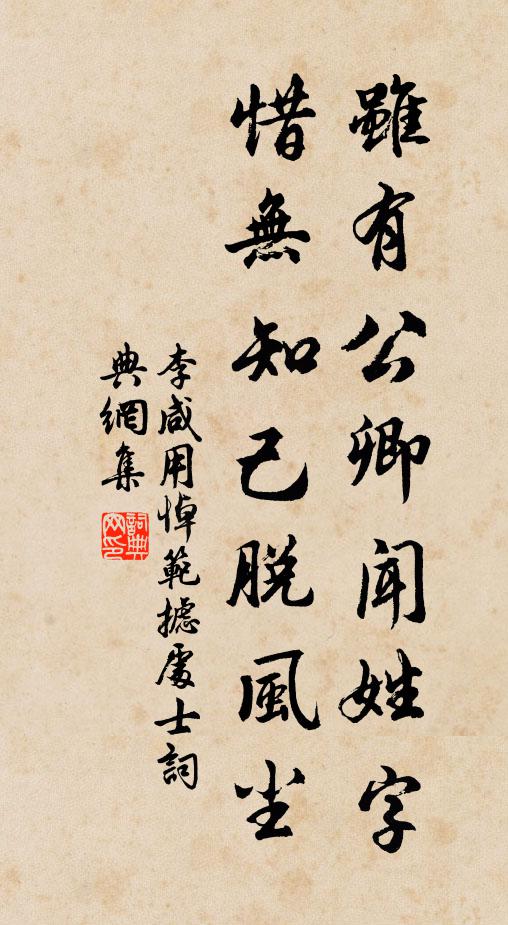 雖有公卿聞姓字
惜無知己脫風尘
李咸用悼範摅處士詞
典網集
詞典
网印